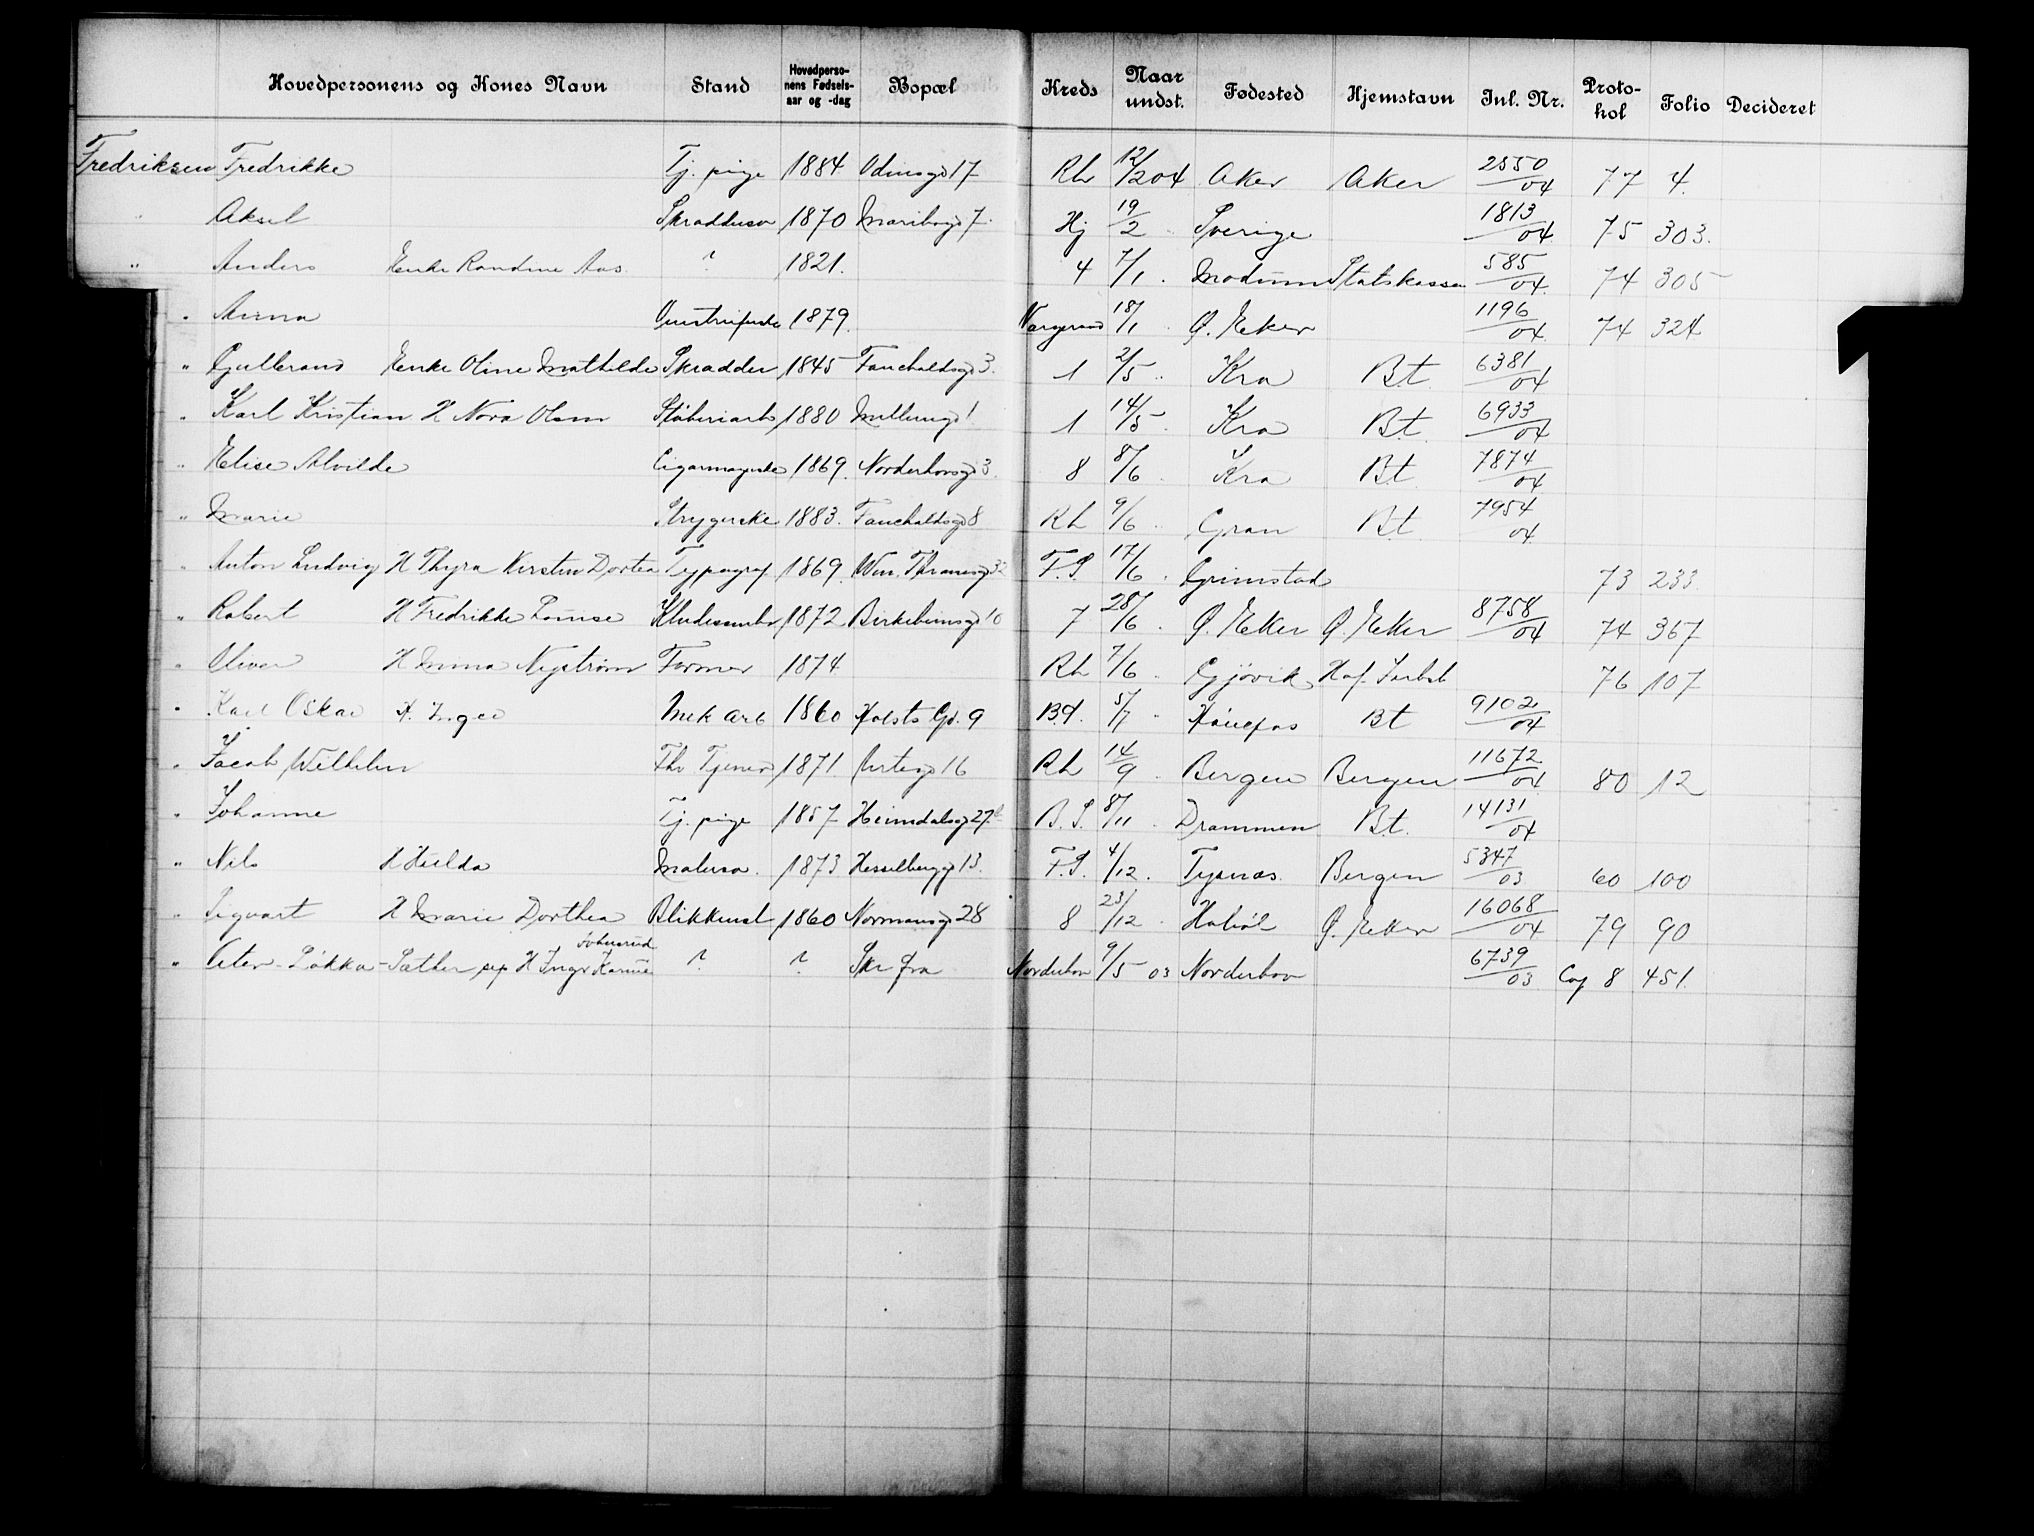 Hovedpersonens og Kones Navn Stand Hovedpersonens Fødselsaar og -dag Bopæl Kreds Naar undst. Fødested Hjemstavn Inl. Nr. Protokol Folio Decideret
Fredriksen Fredrikke Tj. pige 1884 Odinsgd 17 Rh 12/2 04 Aker Aker 2550/04 77 4.
" Aksel 1870 Maribogd 7. Hj 19/2 " Sverige 1813/04 75 303.
" Anders Enke Randine Aas. ? 1821. 4 7/1 . Modum Statskassen 585/04. 74 305
" Anna 1879. 18/1 Ø. Eker 1196/04. 74 324
" Gulbrand Enke Oline Mathilde Skrædder 1845 Fauchaldsgd 3. 1 2/5 " Kra Bt. 6381/04
" Karl Kristian H Nora Olsen 1880 1 1 14/5 . Kra Bt. 6933/04
" Elise Alvilde 1869. Norderhovsgd 3. 8 8/6 . Kra Bt. 7874/04
" Marie Strygerske 1883. Fauchaldsgd 8 Rh 9/6 . Gran Bt. 7954/04.
" Anton Ludvig H Thyra Kirstin Dortea Typograf 1869. Wm. Thranesgd 32 F.S. 17/6 . Grimstad 73 233.
" Robert H Fredrikke Louise 1872 Birkebeinsgd 10 7 28/6 . Ø. Eker Ø. Eker 8758/04 74 367
" Oliver H Anna Nystrøm Former 1874 Rh 7/6 . Gjøvik 76 107
" Karl Oskar H. Inger Mek arb 1860 Holsts Gd. 9 B.S. 5/7 " Hønefos Bt 9102/04
" Jacob Wilhelm Fhv Tjener 1871 Urtegd 16 Rh 14/9 . Bergen Bergen 11672/04 80 12
" Johanne Tj. pige 1857 Heimdalsgd 27 B.S. 8/11 . Drammen Bt. 14131/04
" Nils H Hulda Malersv. 1873 Hesselbergsgd 13. F.S. 4/12. Tysnæs. Bergen 5347/03 60 100
" Sigvart H Marie Dorthea Blikkensl 1860 Normansgd 28 8 23/12 . Hobøl Ø. Eker 16068/04 79 90
" Peter Løkka-Sæther sep H Inger Karine ? ? Skr fra Norderhov 9/5 03 Norderhov 6739/03 Cop 8 451.